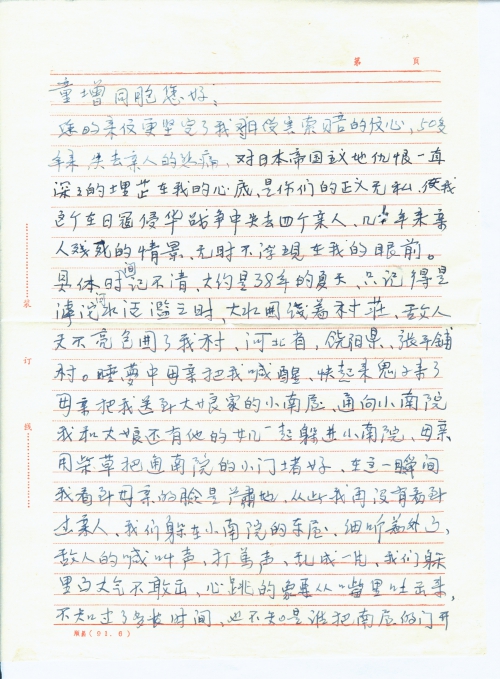 第 頁
童增同胞您好：
您的来信更坚定了我对日侵害索赔的信心，50多
年来失去亲人的悲痛，对日本帝国主地仇恨一直
深深的埋芷在我的心底，是你们的正义无私，使我
这个在日寇侵华战争中失去四个亲人、几十年来亲
人残死的情景，无时不浮现在我的眼前。
具体时间记不清，大约是38年的夏天，只记得是
滹沱河水泛滥之时，大水围绕着村莊，敌人
天不亮包围了我村，河北省，饶阳县，张平铺
村。睡梦中母亲把我喊醒，快起来鬼子来了
母亲把我送到大娘家的小南屋，通向小南院
我和大娘还有他的女儿一起躲进小南院，母亲
用柴草把通南院的小门堵好，在这一瞬间
我看到母亲的脸是肃地，从此我再没有看到
过亲人，我们躲在小南院的东屋，细听着外面，
敌人的喊叫声，打骂声，乱成一片，我们躲
里面大气不敢出，心跳的象要从嘴里吐出来，
不知过了多长时间，也不知是谁把南屋的门开
装
订
线